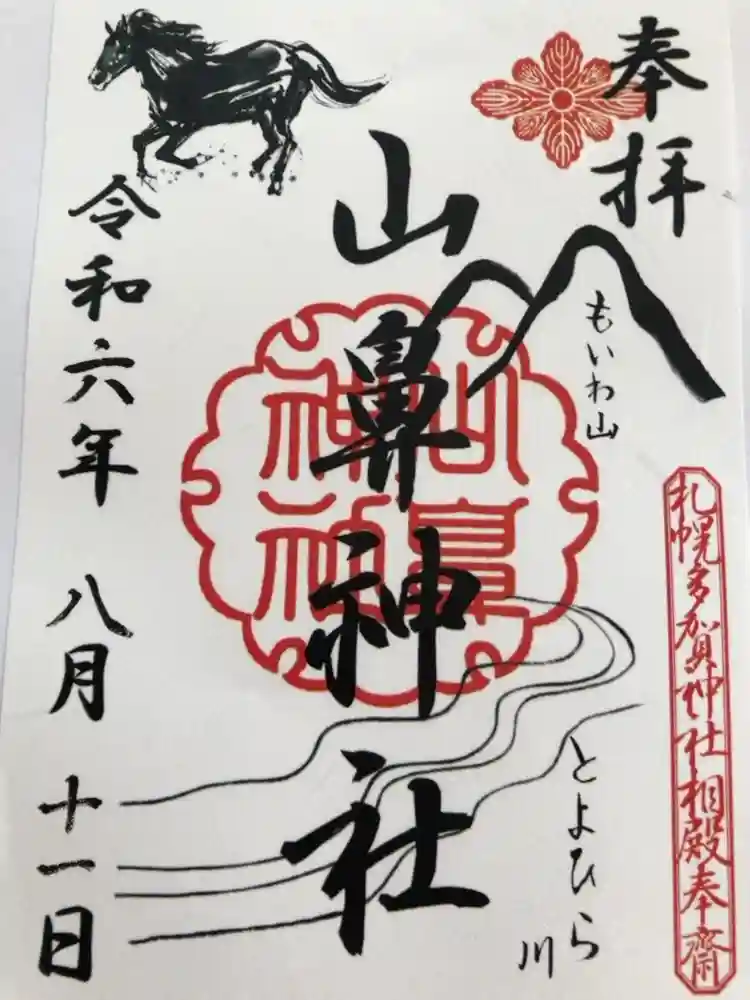 奉拝
もいわ山
札幌多賀神社相殿奉斎
とよひら川
山鼻神社
山鼻神社
令和六年 八月 十一日